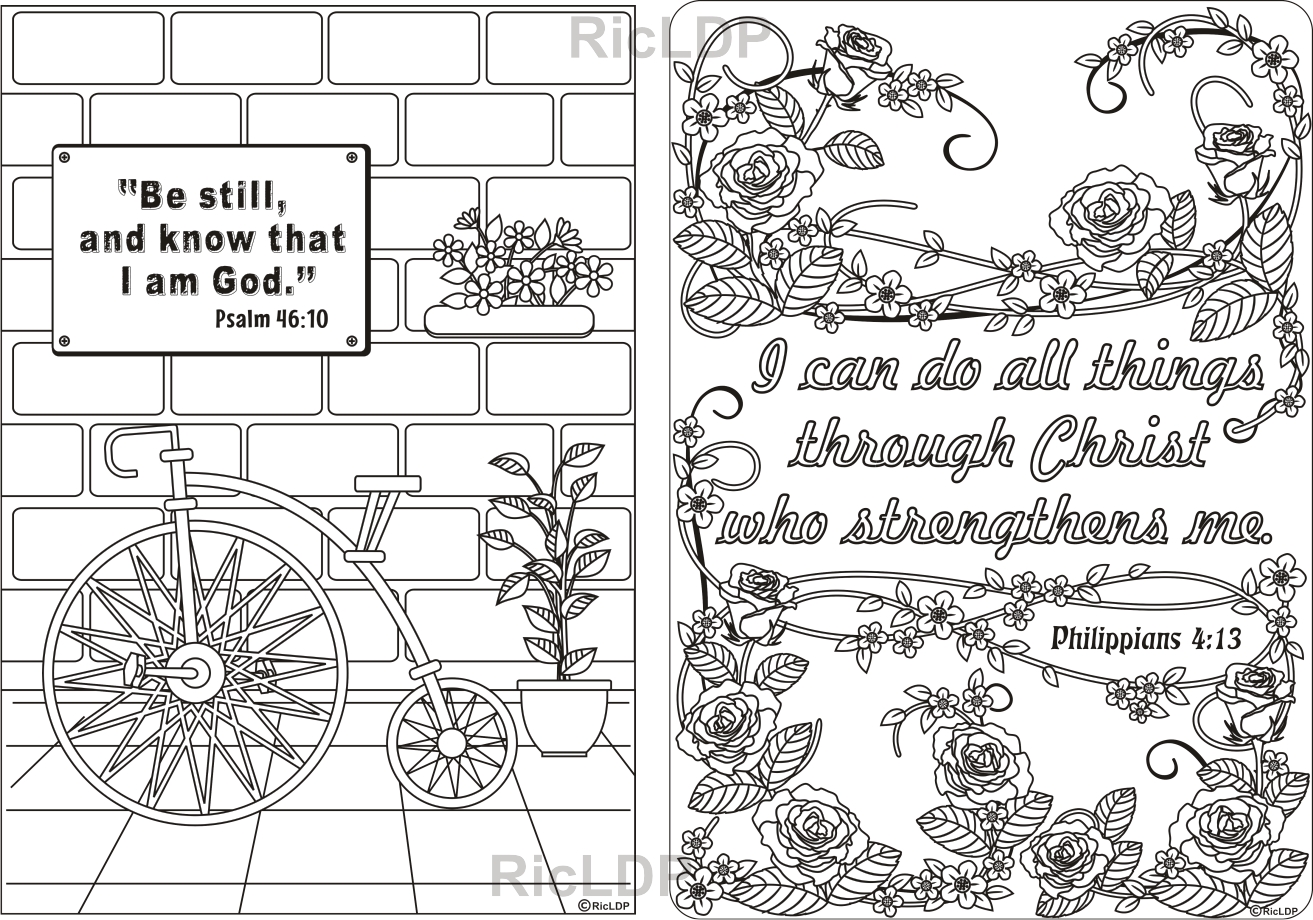 RicLDP
"Be still,
and know that
I am God."
Psalm 46:10
I can do all things
through Christ
who strengthens me.
Philippians 4:13
RicLDP
©RicLDP
©RicLDP